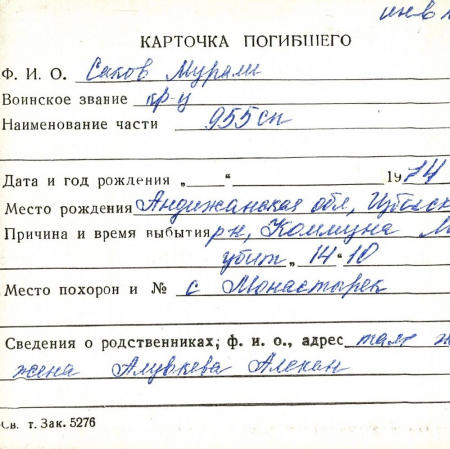 инв
КАРТОЧКА ПОГИБШЕГО
Ф. И. О. Саков Мурали
Воинское звание кр-ц
Наименование части 955 сп
Дата и год рождения „ “ 1914
Место рождения Андижанская обл,
Причина и время выбытия рн, Коммуна
убит „ 14 “ 10
Место похорон и № с Монастырек
Сведения о родственниках, ф. и. о., адрес там
жена
Св. т. Зак. 5276